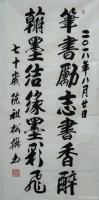 二〇〇八年八月廿日
筆書勵志書香醉
翰墨結緣墨彩飛
七十歲徐祖松撰书